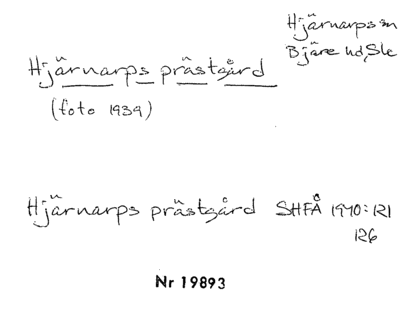 Hjärnarps sn
Bjäre hd, Sk
Hjärnarps prästgård
(foto 1939)
Hjärnarps prästgård SHFÅ 1940:121
126
Nr 19893